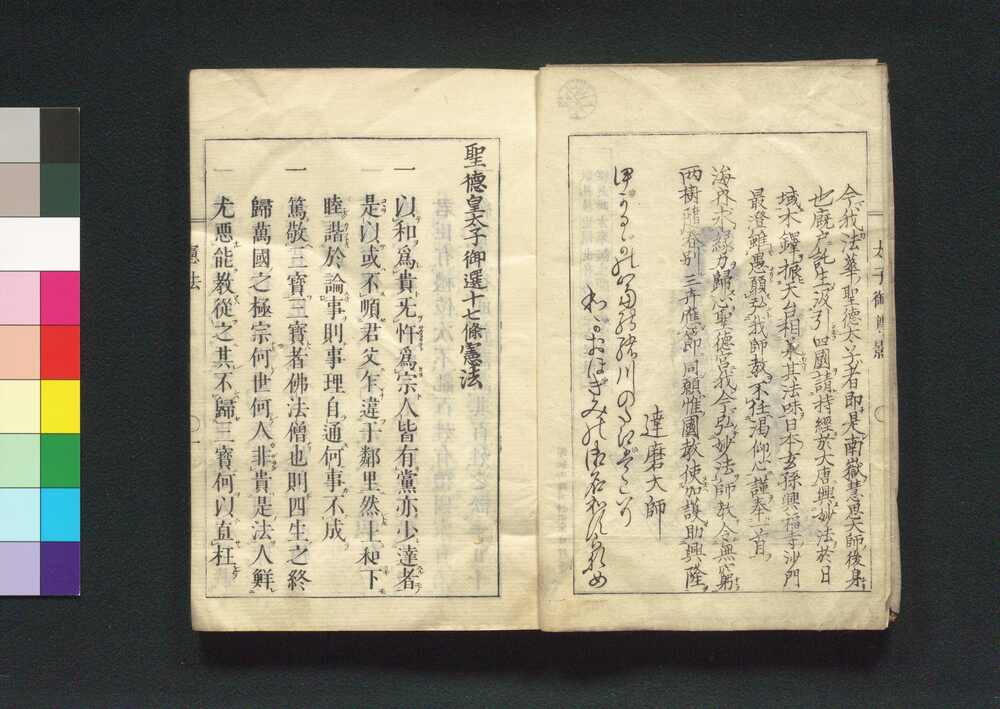 今我法華聖德太子者即是南嶽慧思大師後身
也厩戸託生汲引四國請持經於大唐興妙法於日
域木鐸振天台相承其法味日本玄孫興福寺沙門
最澄雖愚願弘我師教不任渴仰心謹奉一首
海内求緣力歸心聖德宮我今弘妙法師教令無窮
兩樹隨春別三卉應節同願惟國教使加護助興隆
達磨大師
いかるかの富の緒川のたえはこそ
わかおほきみの御名はわすれめ
太子御
聖德皇太子御選十七條憲法
一以和爲貴无忤爲宗人皆有黨亦少達者
是以或不順君父乍違于鄰里然上和下
睦諧於論事則事理自通何事不成
一篤敬三寶三寶者佛法僧也則四生之終
歸萬國之極宗何世何人非貴是法人鮮
尤悪能教從之其不歸三寶何以直枉
憲法
一